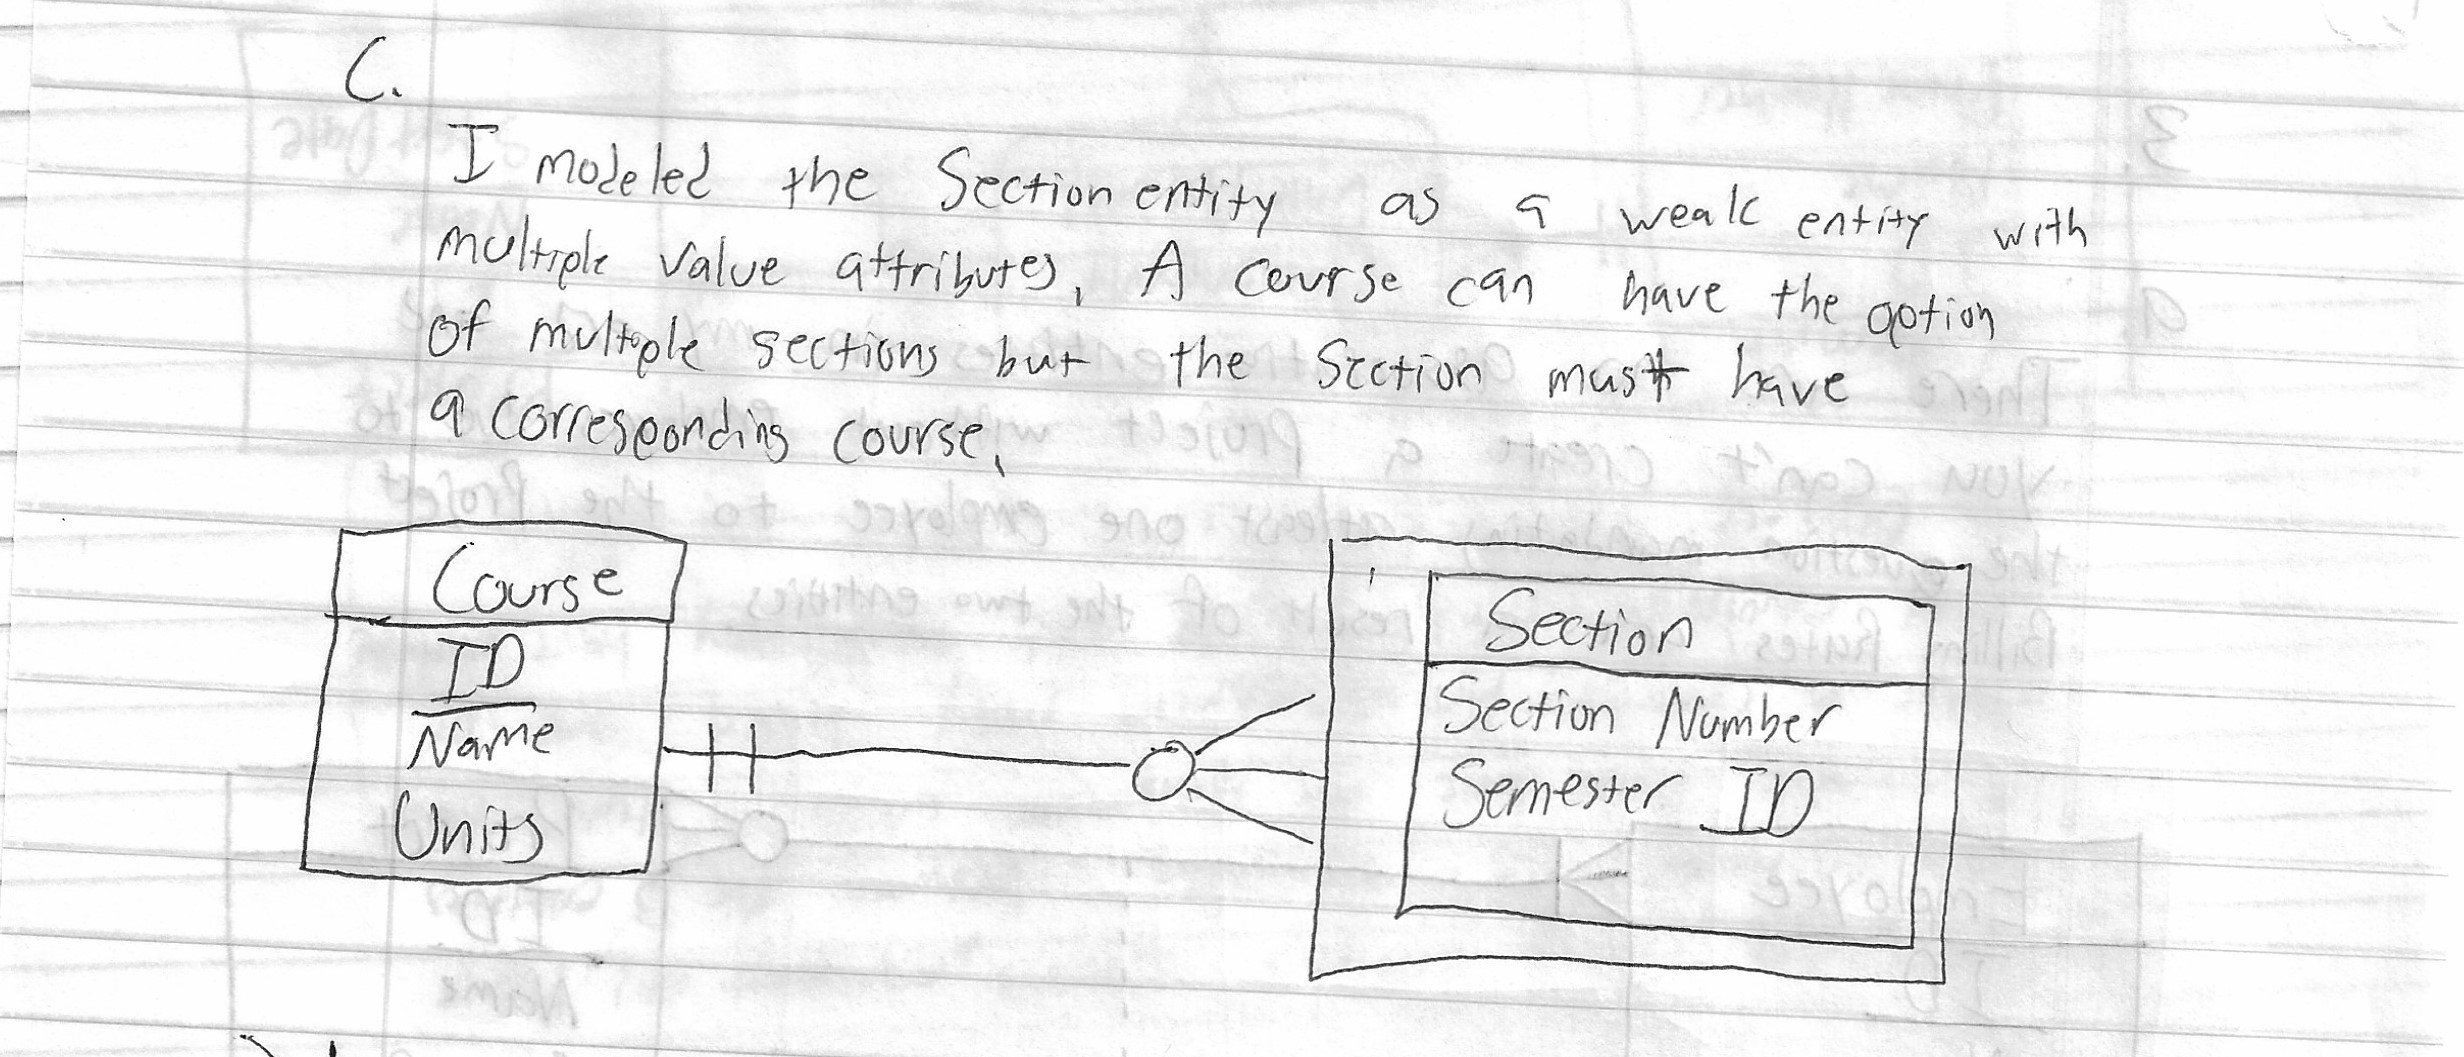 C.
I modeled the Section entity as a weak entity with
multiple value attributes. A course can have the option
of multiple sections but the Section must have
a corresponding course.
Course
ID
Name
Units
Section
Section Number
Semester ID